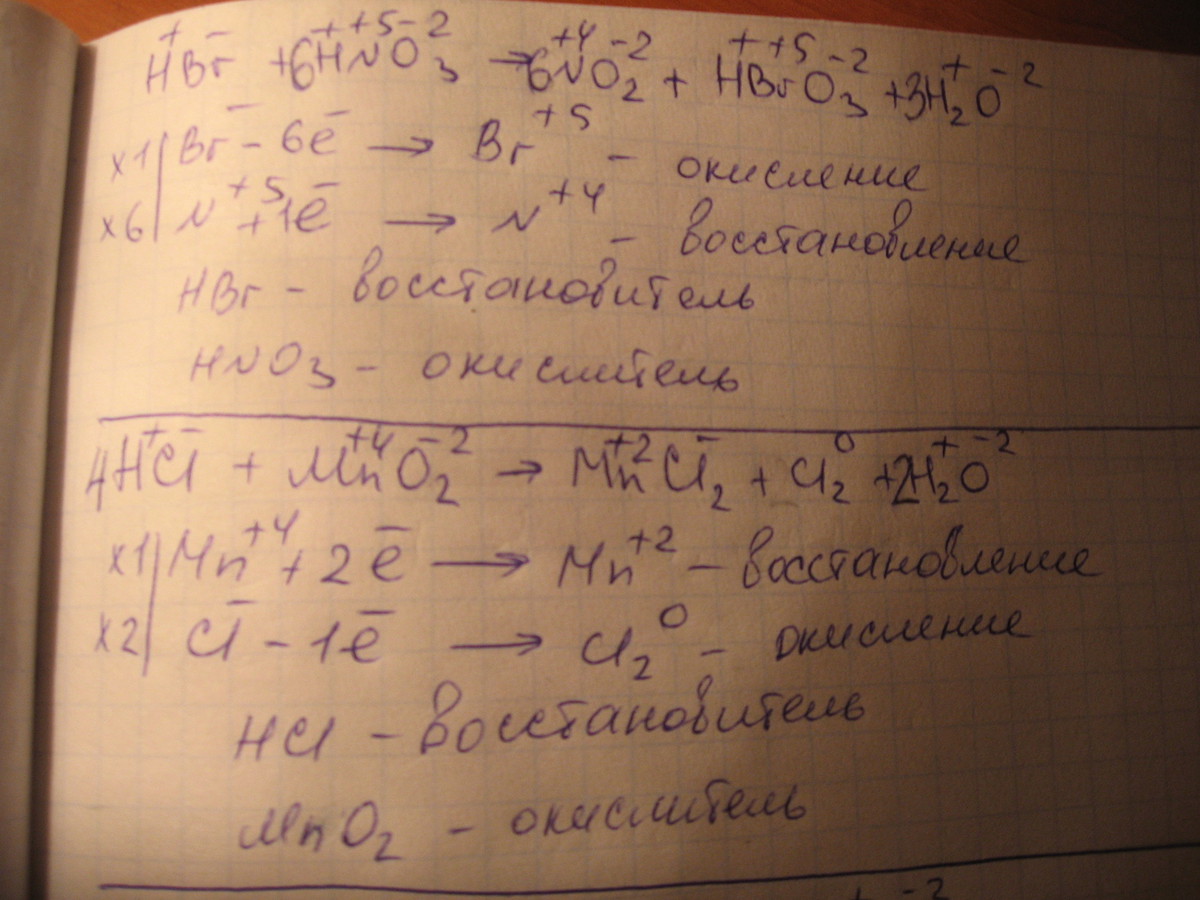 H⁺Br⁻ + 6H⁺N⁺⁵O₃⁻² → 6N⁺⁴O₂⁻² + H⁺Br⁺⁵O₃⁻² + 3H₂⁺O⁻²
x1 | Br⁻ - 6e̅ → Br⁺⁵ - окисление
x6 | N⁺⁵ + 1e̅ → N⁺⁴ - восстановление
HBr - восстановитель
HNO₃ - окислитель
4H⁺Cl⁻ + Mn⁺⁴O₂⁻² → Mn⁺²Cl₂⁻ + Cl₂⁰ + 2H₂⁺O⁻²
x1 | Mn⁺⁴ + 2e̅ → Mn⁺² - восстановление
x2 | Cl⁻ - 1e̅ → Cl₂⁰ - окисление
HCl - восстановитель
MnO₂ - окислитель